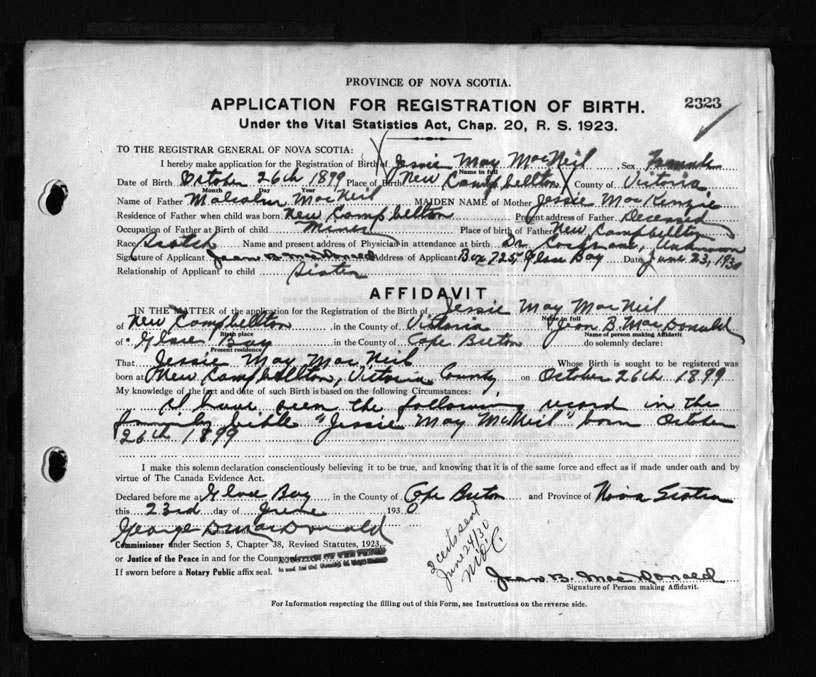 PROVINCE OF NOVA SCOTIA.
APPLICATION FOR REGISTRATION OF BIRTH. 2323
Under the Vital Statistics Act, Chap. 20, R. S. 1923.
TO THE REGISTRAR GENERAL OF NOVA SCOTIA:
I hereby make application for the Registration of Birth of Jessie May MacNeil Sex Female
Name in full
Date of Birth October 26th 1899 Place of Birth New Campbellton County of Victoria
Month Day Year
Name of Father Malcolm MacNeil MAIDEN NAME of Mother Jessie MacKenzie
Residence of Father when child was born New Campbellton Present address of Father Deceased
Occupation of Father at Birth of child Miner Place of birth of Father New Campbellton
Race Scotch Name and present address of Physician in attendance at birth Dr. Unknown
Signature of Applicant Jean B. MacDonald Address of Applicant Box 725 Glace Bay Date June 23, 1930
Relationship of Applicant to child Sister
AFFIDAVIT
IN THE MATTER of the application for the Registration of the Birth of Jessie May MacNeil
Name in full
of New Campbellton in the County of Victoria Jean B. MacDonald
Birth place Name of person making Affidavit
of Glace Bay in the County of Cape Breton do solemnly declare:
Present residence
That Jessie May MacNeil Whose Birth is sought to be registered was
born at New Campbellton, Victoria County on October 26th 1899
My knowledge of the fact and date of such Birth is based on the following Circumstances:
I have seen the following record in the
family bible "Jessie May McNeil" born October
26th 1899
I make this solemn declaration conscientiously believing it to be true, and knowing that it is of the same force and effect as if made under oath and by
virtue of The Canada Evidence Act.
Declared before me at Glace Bay in the County of Cape Breton and Province of Nova Scotia
this 23rd day of June 1930
George D. MacDonald
Commissioner under Section 5, Chapter 38, Revised Statutes, 1923,
or Justice of the Peace in and for the County
If sworn before a Notary Public affix seal.
2 certs sent
June 24/30
Jean B. MacDonald
Signature of Person making Affidavit.
For Information respecting the filling out of this Form, see Instructions on the reverse side.